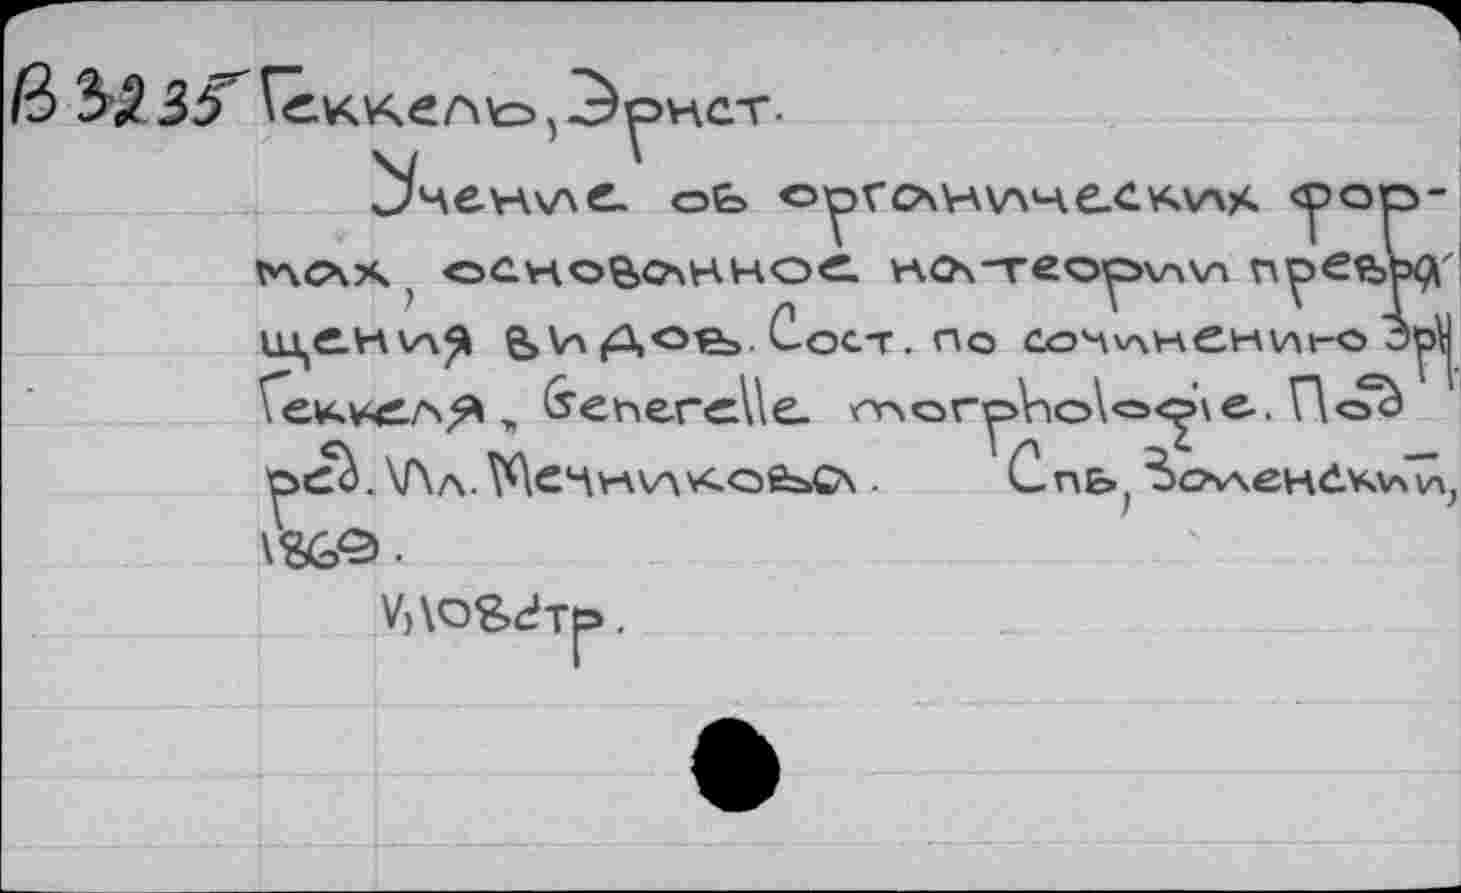 В 3235 Геккель, Эрнст.
Учение об органических фор-
мах, основанное на теории превра-
щения видов. Сост. по сочинению Эрн.
Геккеля, Generelle morphologie. Под
ред. Ил. Мечникова. Спб, Заленский,
1869.